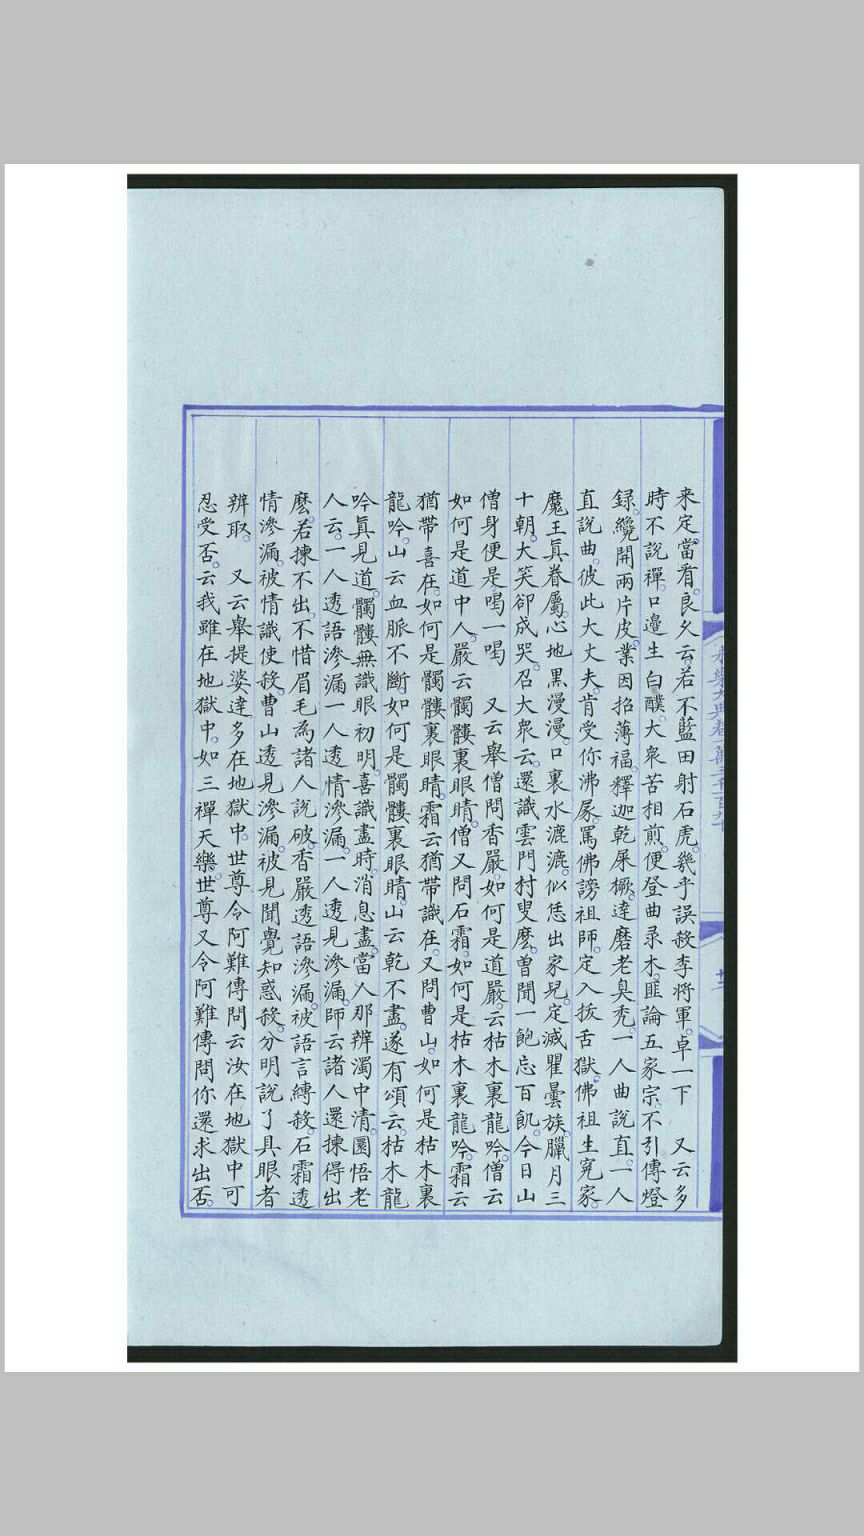 来定當㸔良久云若不藍田射石虎幾乎誤殺李將軍卓一下　又云多
時不說禪口邊生白醭大衆苦相煎便登曲录木匪論五家宗不引傳燈
録纔開兩片皮業因招薄福釋迦乾屎橛達磨老臭禿一人曲說直一人
直說曲彼此大丈夫肯受你沸屎罵佛謗祖師定入拔舌獄佛祖生寃家
魔王眞眷屬心地黒漫漫口裏水漉漉似恁出家兒定滅瞿曇族臘月三
十朝大笑卻成哭召大衆云還識雲門村叟麽曽聞一飽忘百飢今日山
僧身便是喝一喝　又云舉僧問香嚴如何是道嚴云枯木裏龍吟僧云
如何是道中人嚴云髑髏裏眼睛僧又問石霜如何是枯木裏龍吟霜云
猶帶喜在如何是髑髏裏眼睛霜云猶帶識在又問曹山如何是枯木裏
龍吟山云血脈不斷如何是髑髏裏眼睛山云乾不盡遂有頌云枯木龍
吟眞見道髑髏無識眼初明喜識盡時消息盡當人那辨濁中清圜悟老
人云一人透語滲漏一人透情滲漏一人透見滲漏師云諸人還揀得出
麽若揀不出不惜眉毛為諸人說破香嚴透語滲漏被語言縛殺石霜透
情滲漏被情識使殺曹山透見滲漏被見聞覺知惑殺分明說了具眼者
辨取　又云舉提婆達多在地獄中世尊令阿難傳問云汝在地獄中可
忍受否云我雖在地獄中如三禪天樂世尊又令阿難傳問你還求出否